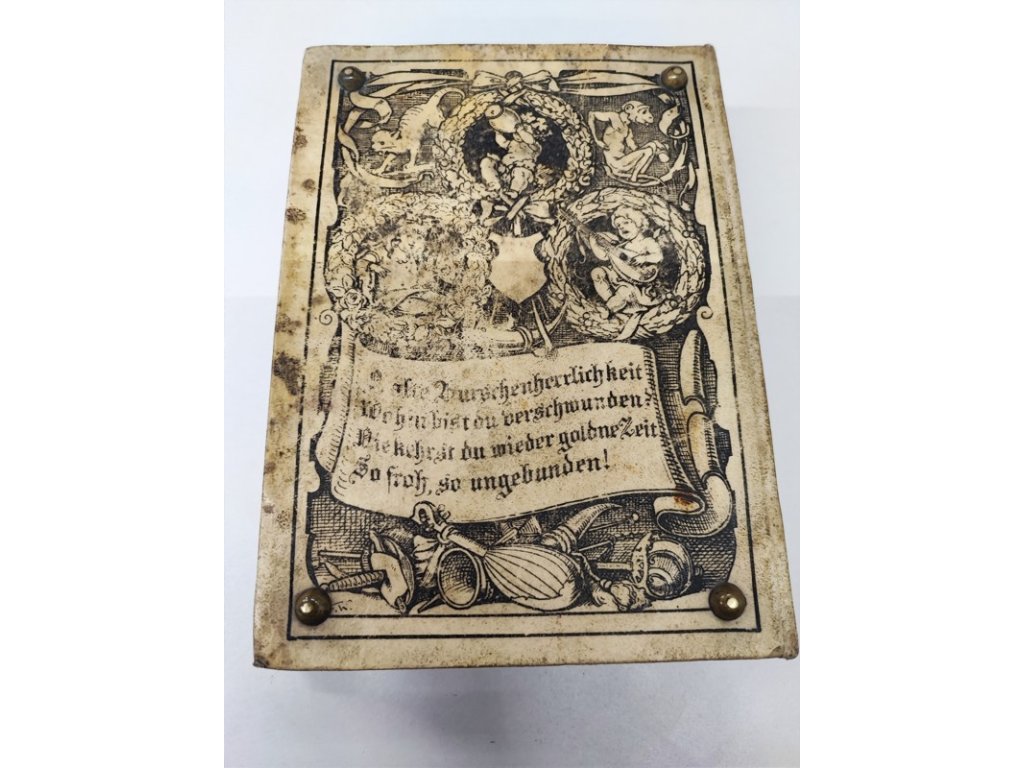 O alte Burschenherrlichkeit
Wohin bist du verschwunden?
Nie kehrst du wieder goldne Zeit
So froh, so ungebunden!